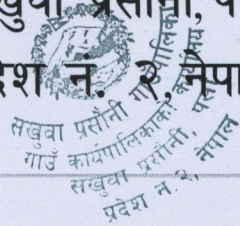 सखुवा प्रसौनी, प
देश नं. २, नेपा
सखुवा प्रसौनी गाउँपालिका
गाउँ कार्यपालिकाको कार्यालय
सखुवा प्रसौनी, पर्सा
प्रदेश नं. २, नेपाल